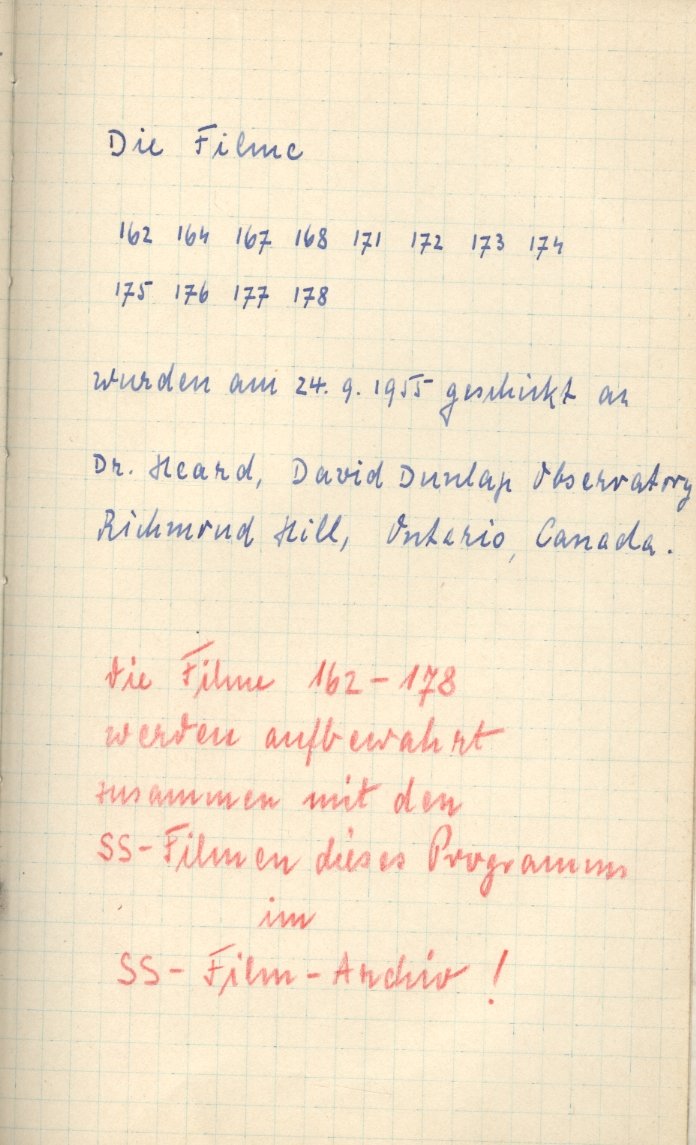 Die Filme
162 164 167 168 171 172 173 174
175 176 177 178
wurden am 24. 9. 1955 geschickt an
Dr. Heard, David Dunlap Observatory
Richmond Hill, Ontario, Canada.
Die Filme 162 - 178
werden aufbewahrt
zusammen mit den
SS-Filmen dieses Programms
im
SS - Film - Archiv !